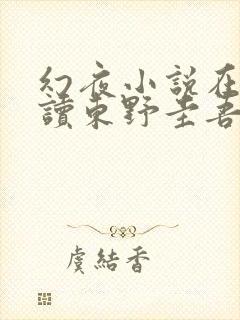 幻夜小说在
讀東野圭吾
虞結香